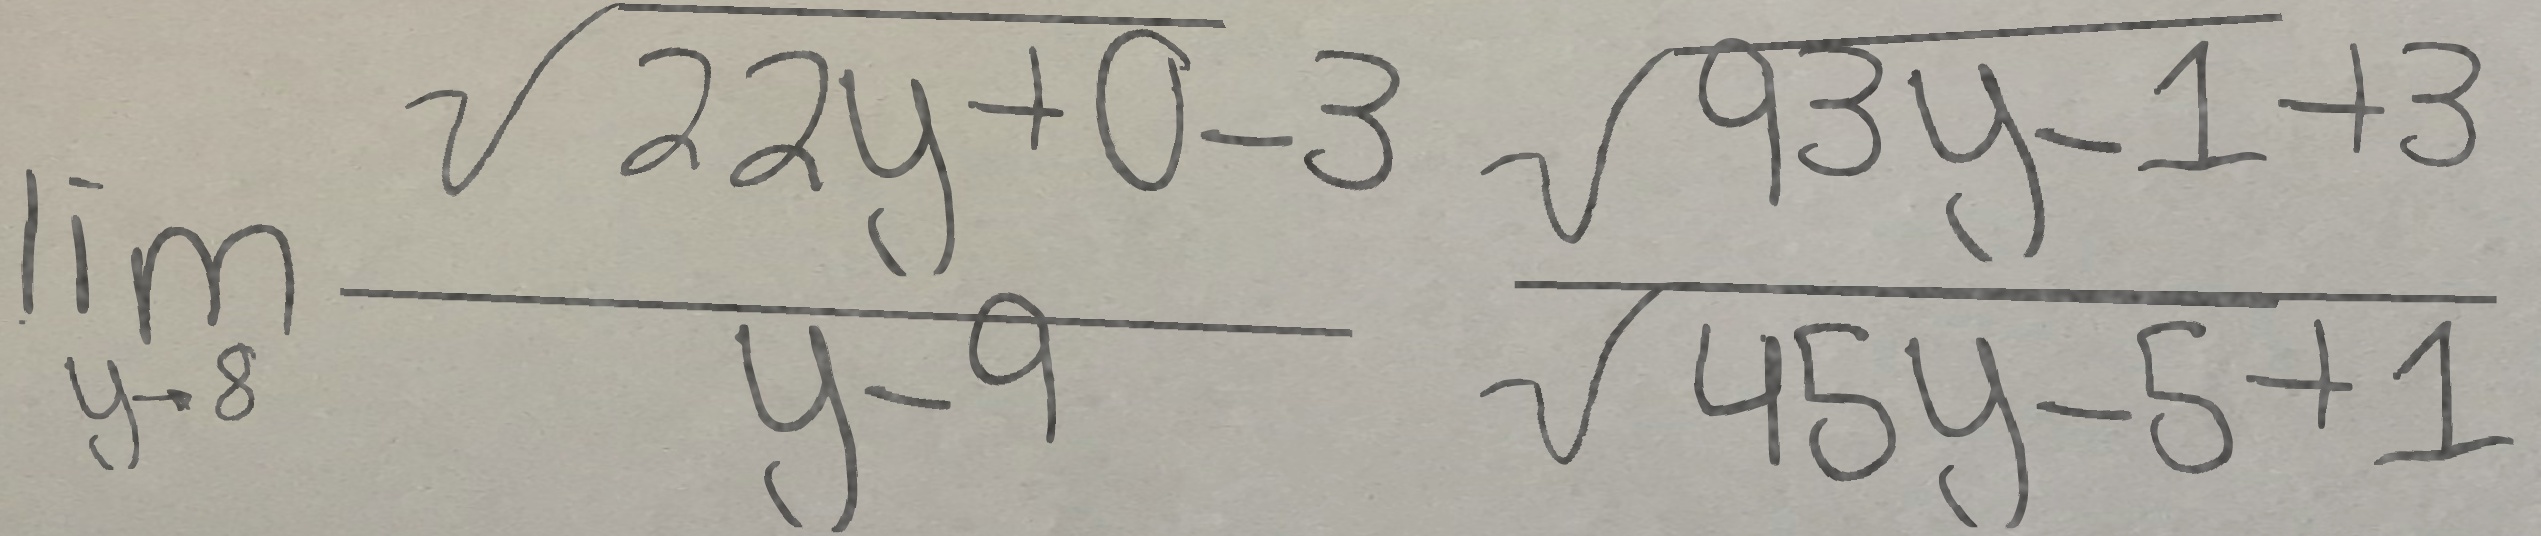 \lim_{y \to 8} \frac{\sqrt{22y+0}-3}{y-9} \frac{\sqrt{93y-1}+3}{\sqrt{45y-5}+1}